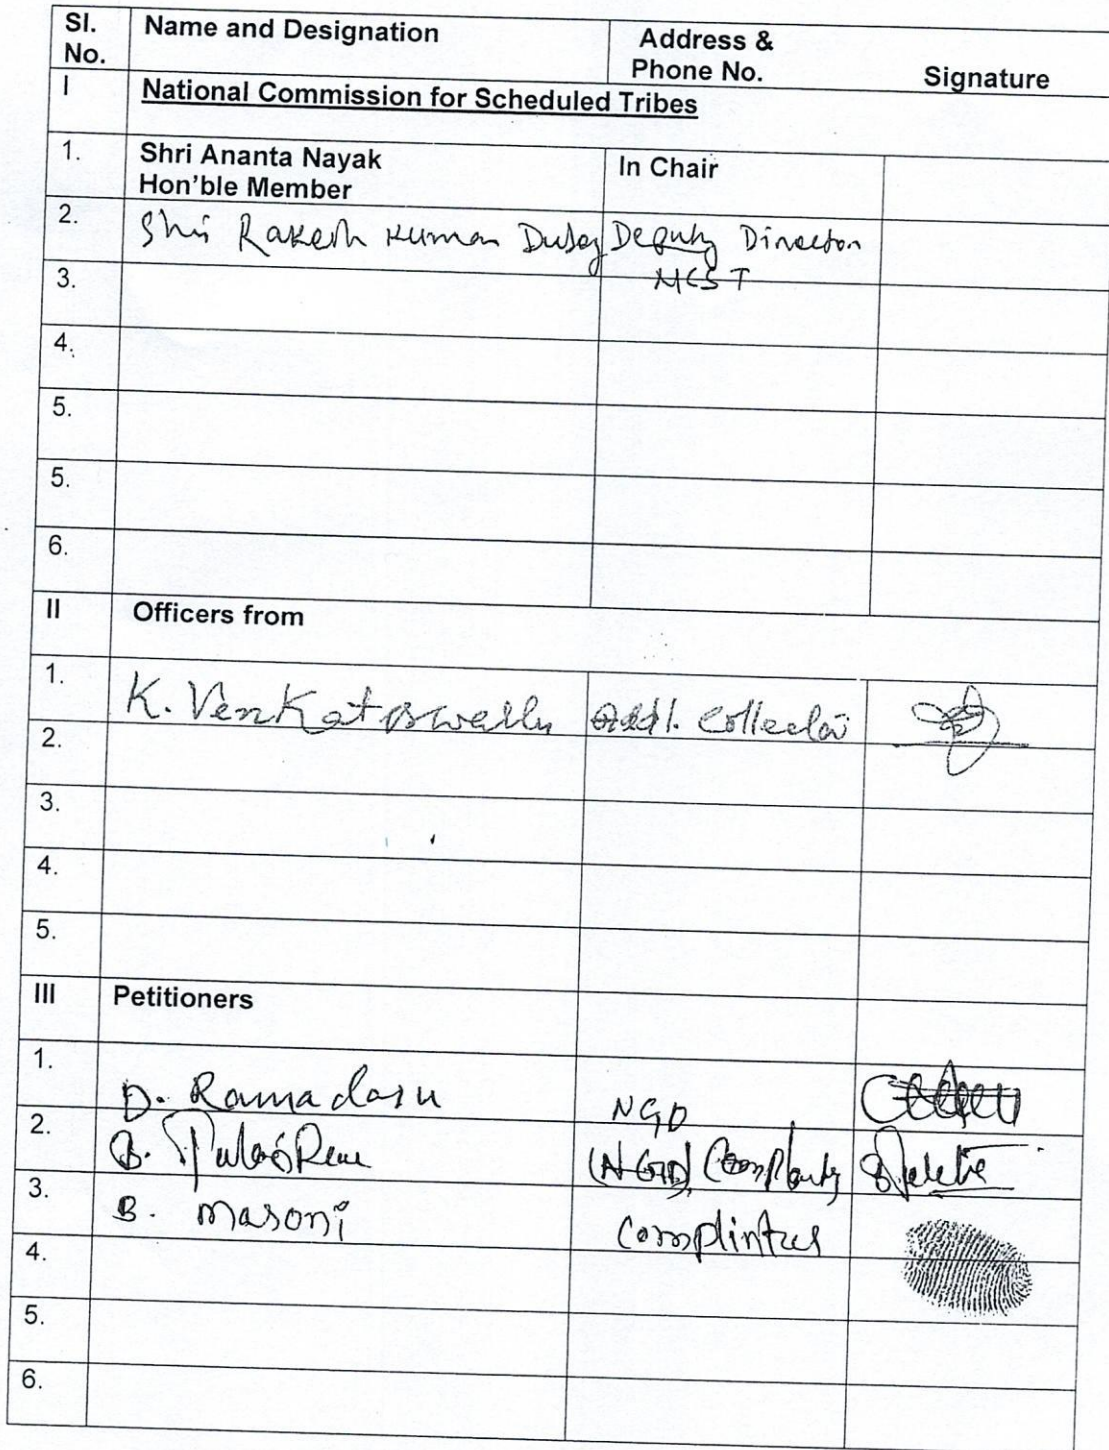 Sl. No. Name and Designation Address & Phone No. Signature
I National Commission for Scheduled Tribes
1. Shri Ananta Nayak Hon'ble Member In Chair
2. Shri Rakesh Kumar Dubey Deputy Director
NCST
3.
4.
5.
5.
6.
II Officers from
1. K. Venkataswally Addl. Collector
2.
3.
4.
5.
III Petitioners
1. D. Ramadasu NGO
2. B. (NGO)
3. B. Masoni
4.
5.
6.